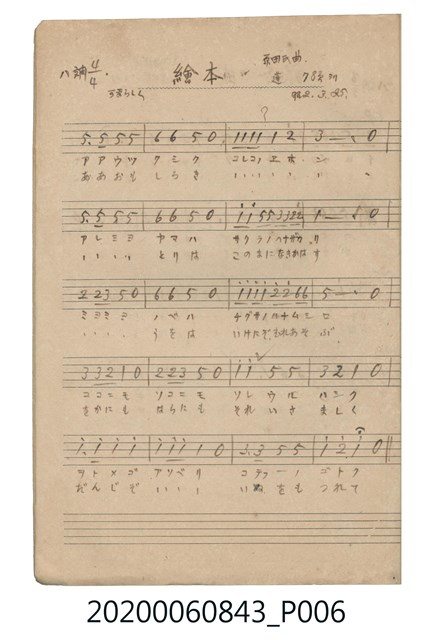 ハ調 4/4
繪本
5. 5 5 5 | 6 6 5 0 | 1 1 1 1 1 2 | 3 — 、 0
アアウツ クミク コレコノエホ ン
ああおも しろき いいいい い い
5. 5 5 5 | 6 6 5 0 | 1 1 5 5 3 1 2 2 | 1 — 、 0
アレミミ ヤマハ
いいいい とりは このまになきかはす
2 2 3 5 0 | 6 6 5 0 | 1 1 1 1 2 2 6 6 | 5 — 、 0
ミミミミ ノベハ チグサノハナムシロ
いいいい うをは いけにぞむれあそ ぶ
3 3 2 1 0 | 2 2 3 5 0 | 1 1 5 5 | 3 2 1 0
ココニモ ソコニモ ソレウル ハシク
をかにも はらにも それいさ ましく
1. 1 1 1 | 1 1 1 1 0 | 3. 3 5 5 | 1 2 1 0
ヲトメゴ アソベリ コテフーノ ゴトク
だんじぞ いいい いぬをも つれて
20200060843_P006